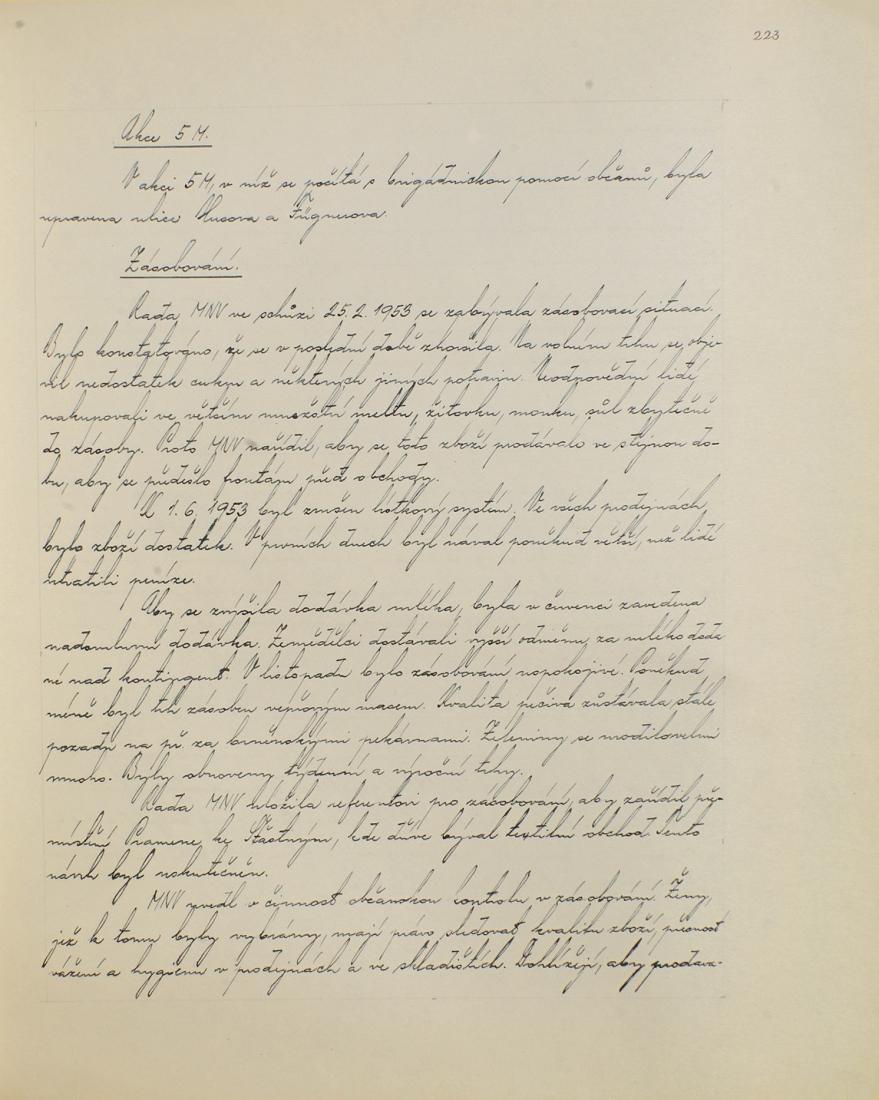 223
Akce 5 M.
V akci 5 M, v níž se počítá s brigádnickou pomocí občanů, byla
upravena ulice Husova a Fügnerova.
Zásobování.
Rada MNV ve schůzi 25. 2. 1953 se zabývala zásobovací situací.
Bylo konstatováno, že se v poslední době zhoršila. Na volném trhu se obje-
vil nedostatek cukru a některých jiných potravin. Neodpovědní lidé
nakupovali ve větším množství meltu, žitovku, mouku, sůl zbytečně
do zásoby. Proto MNV nařídil, aby se toto zboží prodávalo ve stejnou do-
bu, aby se předešlo frontám před obchody.
K 1. 6. 1953 byl zrušen lístkový systém. Ve všech prodejnách
bylo zboží dostatek. V prvních dnech byl nával poněkud větší, než lidé
utratili peníze.
Aby se zvýšila dodávka mléka, byla v červenci zavedena
nadsmluvní dodávka. Zemědělci dostávali vyšší odměnu za mléko doda
né nad kontingent. V listopadu bylo zásobování uspokojivé. Poněkud
méně byl trh zásoben vepřovým masem. Kvalita pečiva zůstávala stále
pozadu na př. za brněnskými pekárnami. Zeleniny se urodilo velmi
mnoho. Byly obnoveny týdenní a výroční trhy.
Rada MNV uložila referentovi pro zásobování, aby zařídil pře-
místění Pramene ke Šťastným, kde dříve býval textilní obchod. Tento
návrh byl uskutečněn.
MNV uvedl v činnost občanskou kontrolu v zásobování. Ženy,
jež k tomu byly vybrány, mají právo sledovat kvalitu zboží, přesnost
vážení a hygienu v prodejnách a ve skladištích. Dohlížejí, aby prodava-